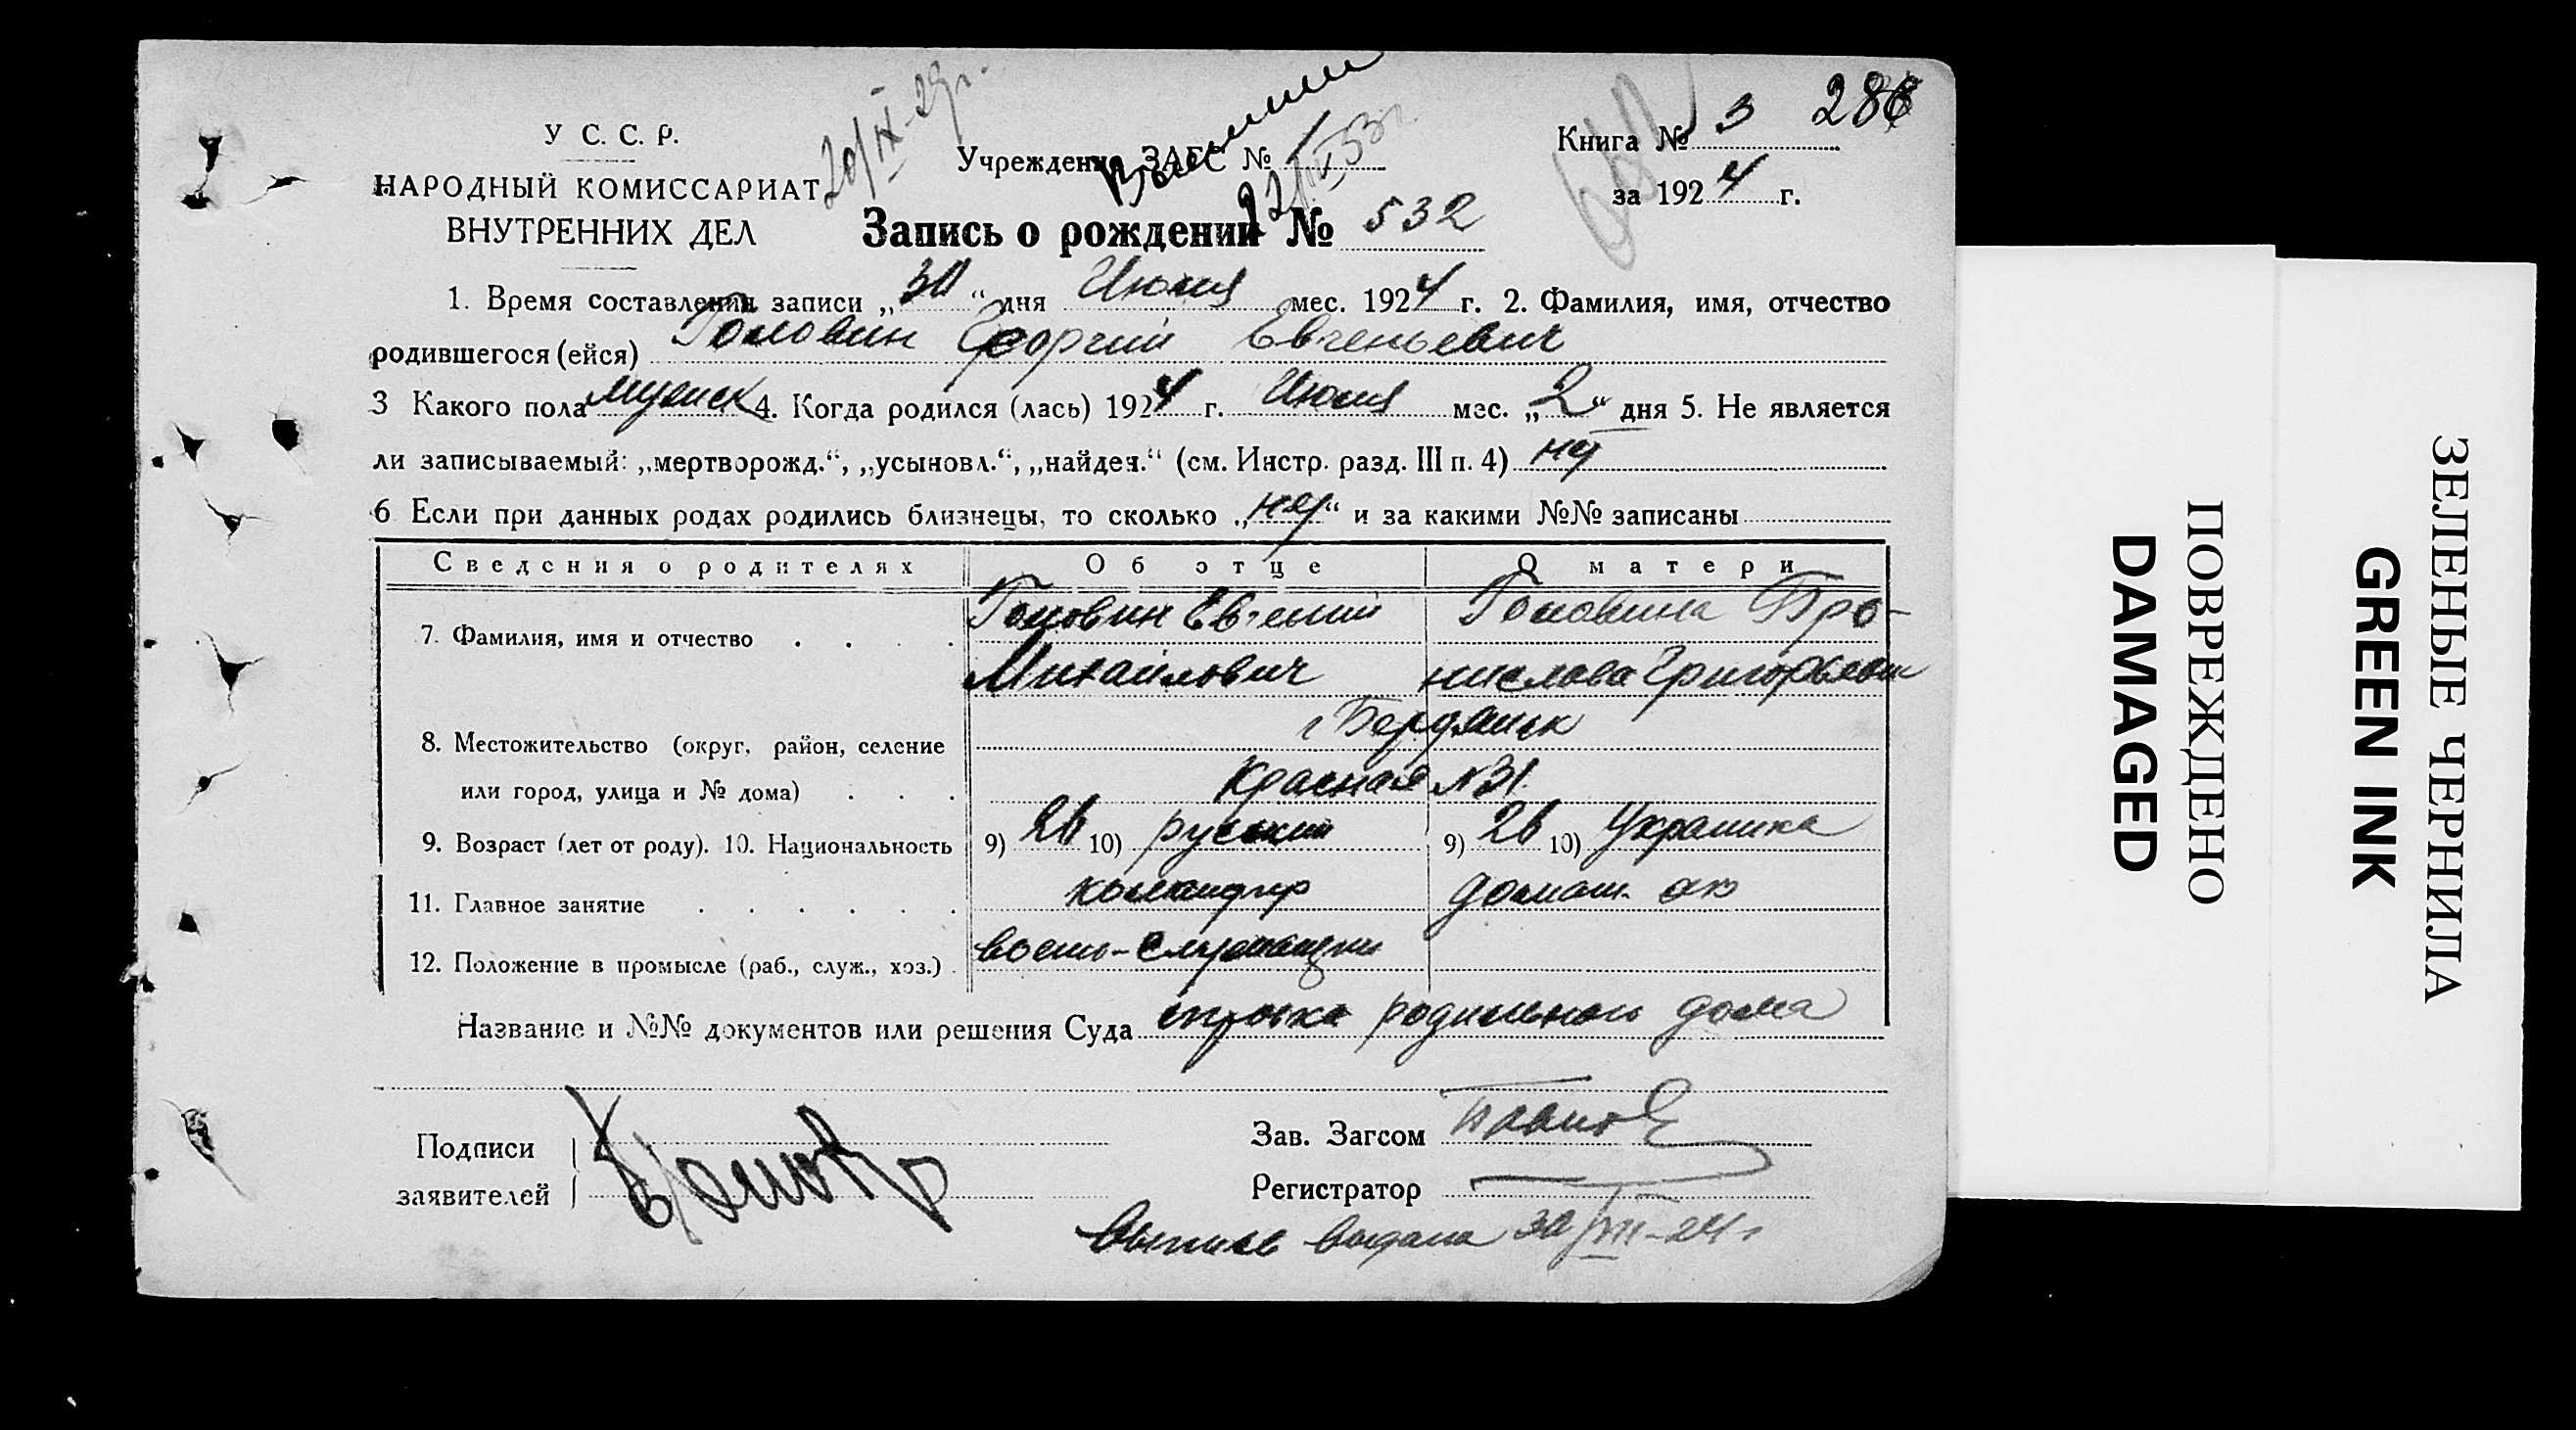 20/IX-29г.
Выпись
22/IV 33г.
286
У С. С. Р.
НАРОДНЫЙ КОМИССАРИАТ
ВНУТРЕННИХ ДЕЛ
Учреждение ЗАГС № 1
Книга № 3
за 1924 г.
Запись о рождении № 532
1. Время составления записи „30“ дня Июля мес. 1924 г. 2. Фамилия, имя, отчество
родившегося (ейся) Головин Георгий Евгеньевич
3 Какого пола мужск 4. Когда родился (лась) 1924 г. Июля мес. „2“ дня 5. Не является
ли записываемый: „мертворожд.“, „усыновл.“, „найден.“ (см. Инстр. разд. III п. 4) нет
6 Если при данных родах родились близнецы, то сколько „нет“ и за какими №№ записаны
Сведения о родителях Об отце О матери
7. Фамилия, имя и отчество Головин Евгений Головина Бро-
Михайлович нислава Григорьевн
8. Местожительство (округ, район, селение г Бердянск
или город, улица и № дома) Красная №31.
9. Возраст (лет от роду). 10. Национальность 9) 26 10) руський 9) 26 10) Украинка
11. Главное занятие командир домаш. хоз
12. Положение в промысле (раб., служ., хоз.) военно-служащий
Название и №№ документов или решения Суда справка родильного дома
Подписи
заявителей
Зав. Загсом
Регистратор
Выпись выдана 30/VII-24г
ПОВРЕЖДЕНО
DAMAGED
ЗЕЛЕНЫЕ ЧЕРНИЛА
GREEN INK